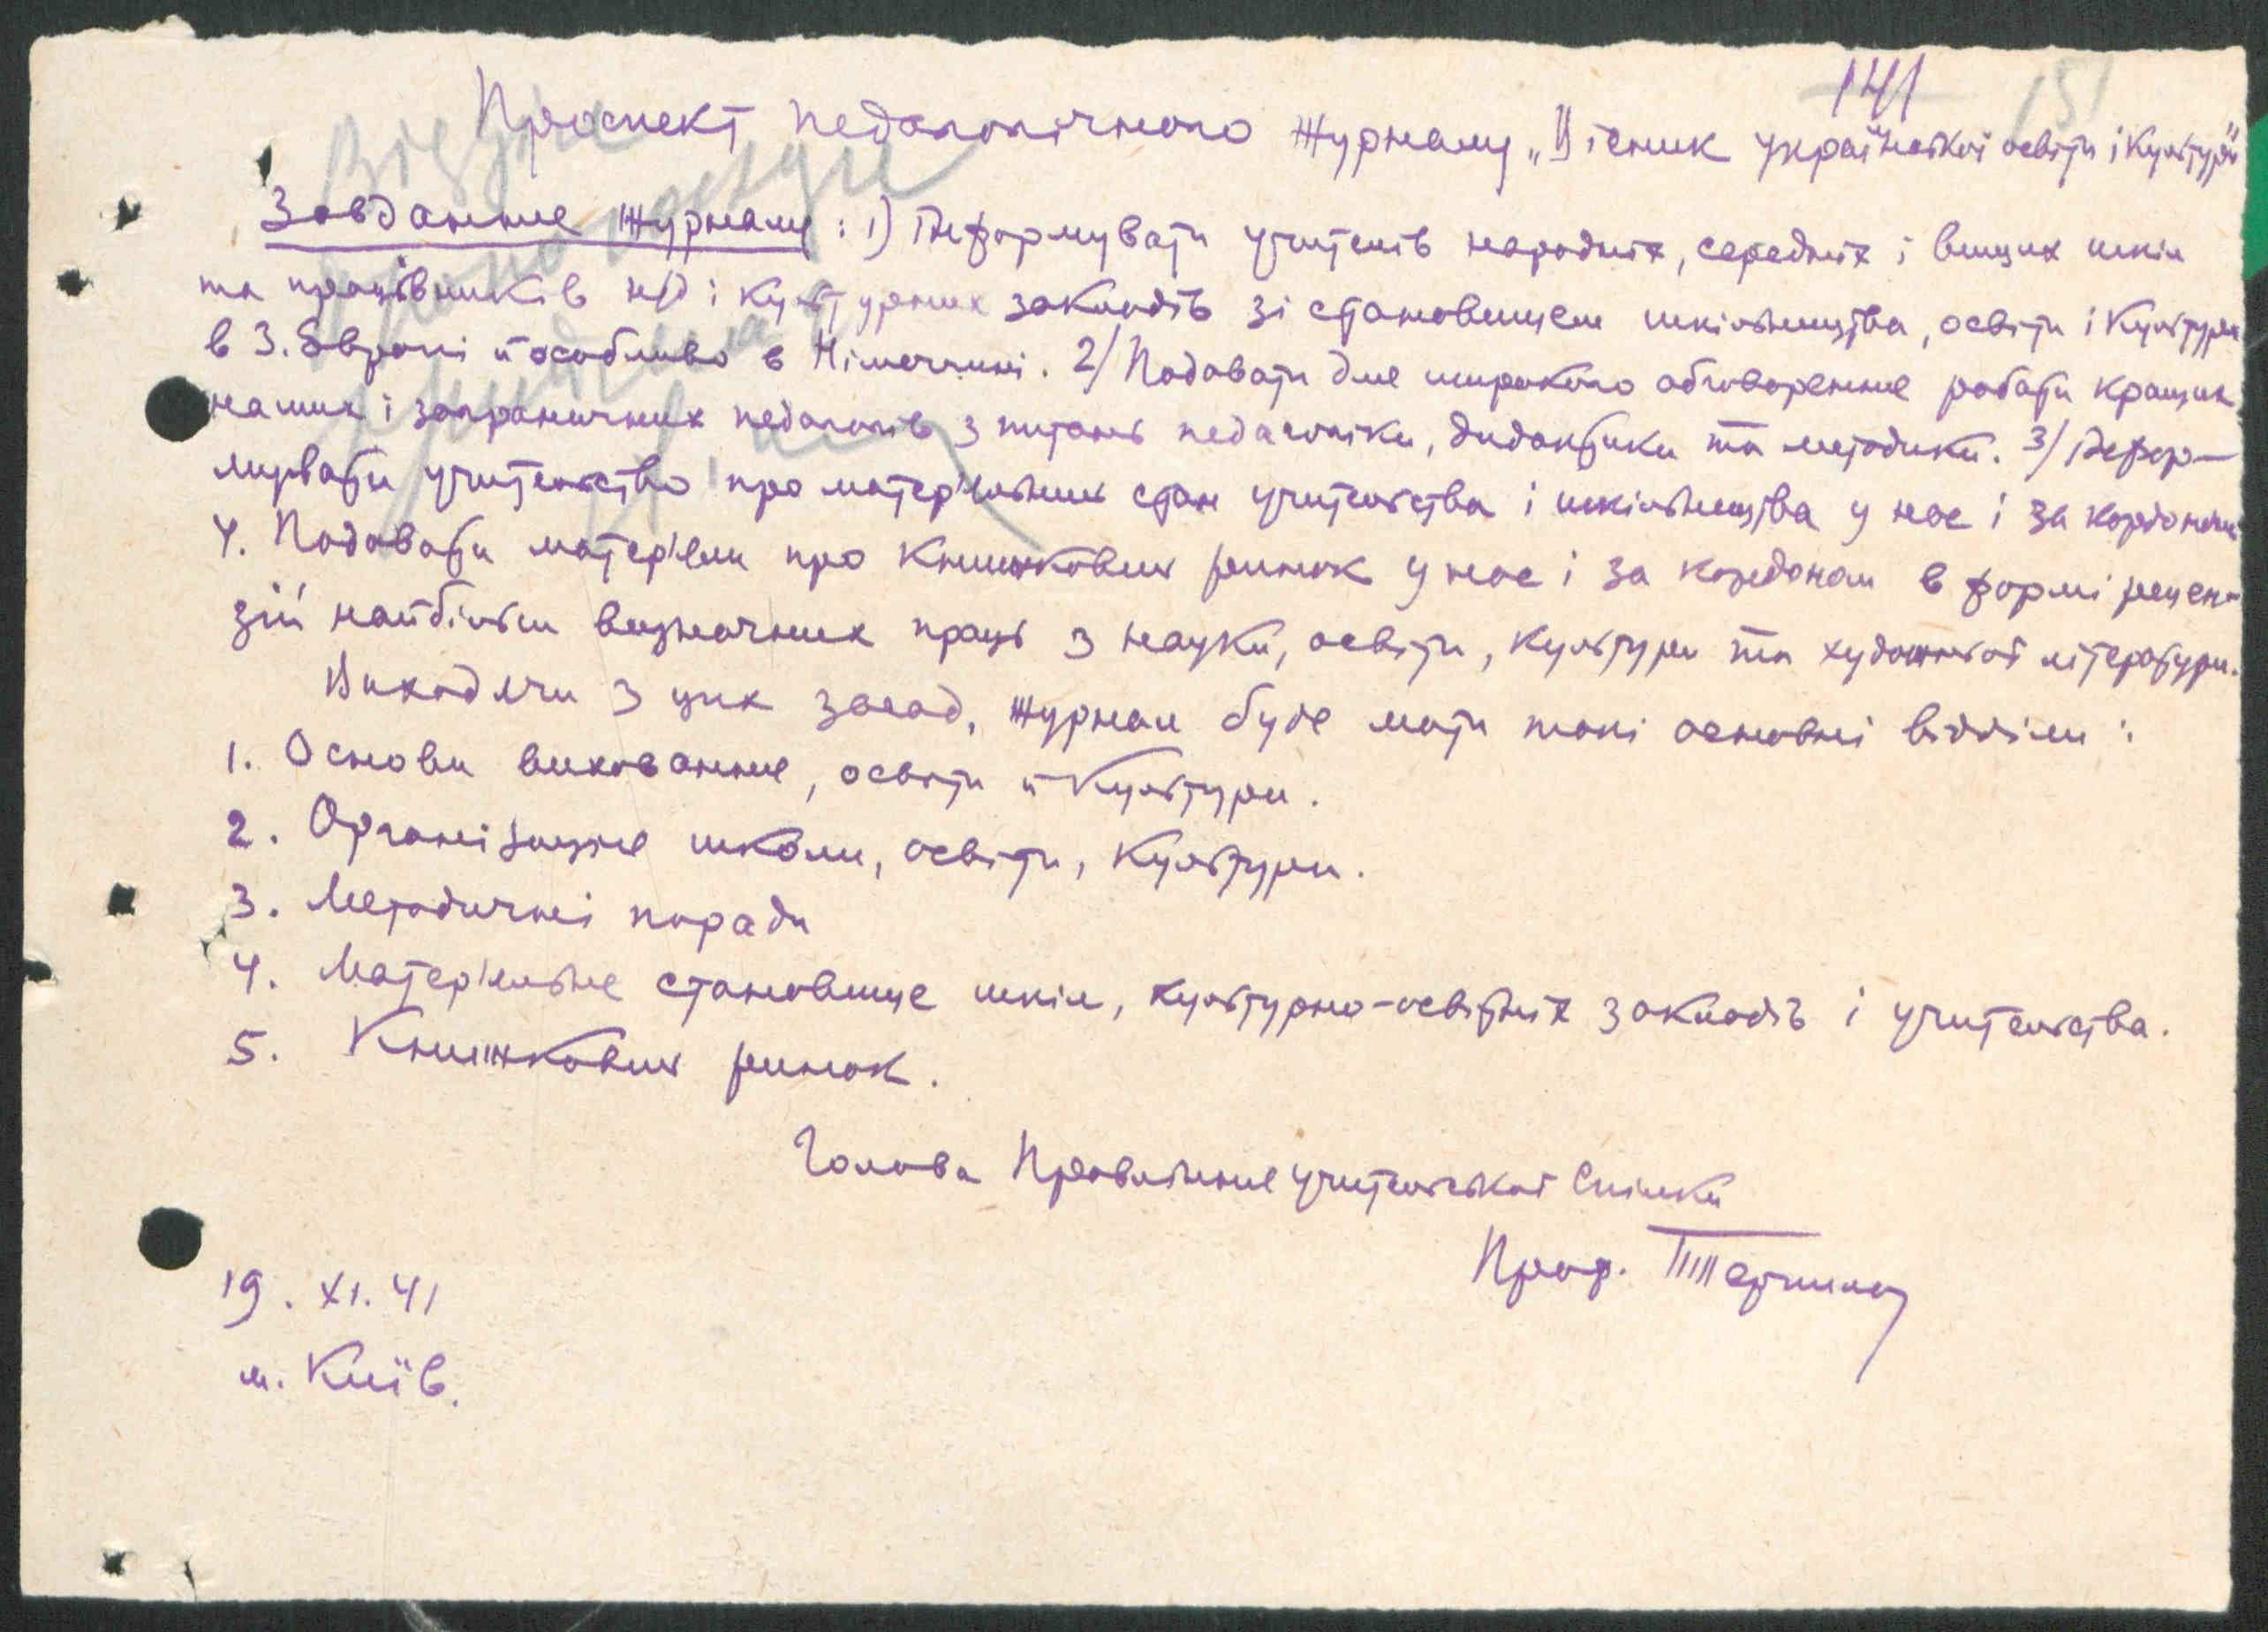 141
151
Проспект педагогічного журналу „Вісник української освіти і культури"
Завдання журналу: 1) Інформувати учителів народніх, середніх і вищих шкіл
та працівників н/д і культурних закладів зі становищем шкільництва, освіти і культури
в З. Европі й особливо в Німеччині. 2/ Подавати для широкого обговорення роботи кращих
наших і заграничних педагогів з питань педагогіки, дидактики та методики. 3/ Інфор-
мувати учительство про матеріяльний стан учительства і шкільництва у нас і за кордоном
4. Подавати матеріяли про книжковий ринок у нас і за кордоном в формі рецен-
зій найбільш визначних праць з науки, освіти, культури та художньої літератури.
Виходячи з цих засад, журнал буде мати такі основні відділи:
1. Основи виховання, освіти й культури.
2. Організація школи, освіти, культури.
3. Методичні поради
4. Матеріяльне становище шкіл, культурно-освітніх закладів і учительства.
5. Книжковий ринок.
Голова Правління учительської Спілки
Проф.
19. XI. 41
м. Київ.